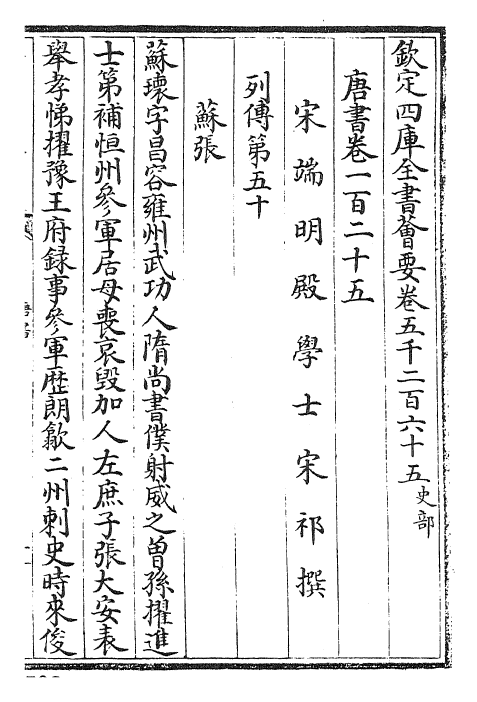 欽定四庫全書薈要卷五千二百六十五史部
唐書卷一百二十五
宋端明殿學士宋祁撰
列傳第五十
蘇張
蘇瓌字昌容雍州武功人隋尚書僕射威之曾孫擢進
士第補恒州參軍居母喪哀毀加人左庶子張大安表
舉孝悌擢豫王府録事參軍歴朗歙二州刺史時來俊